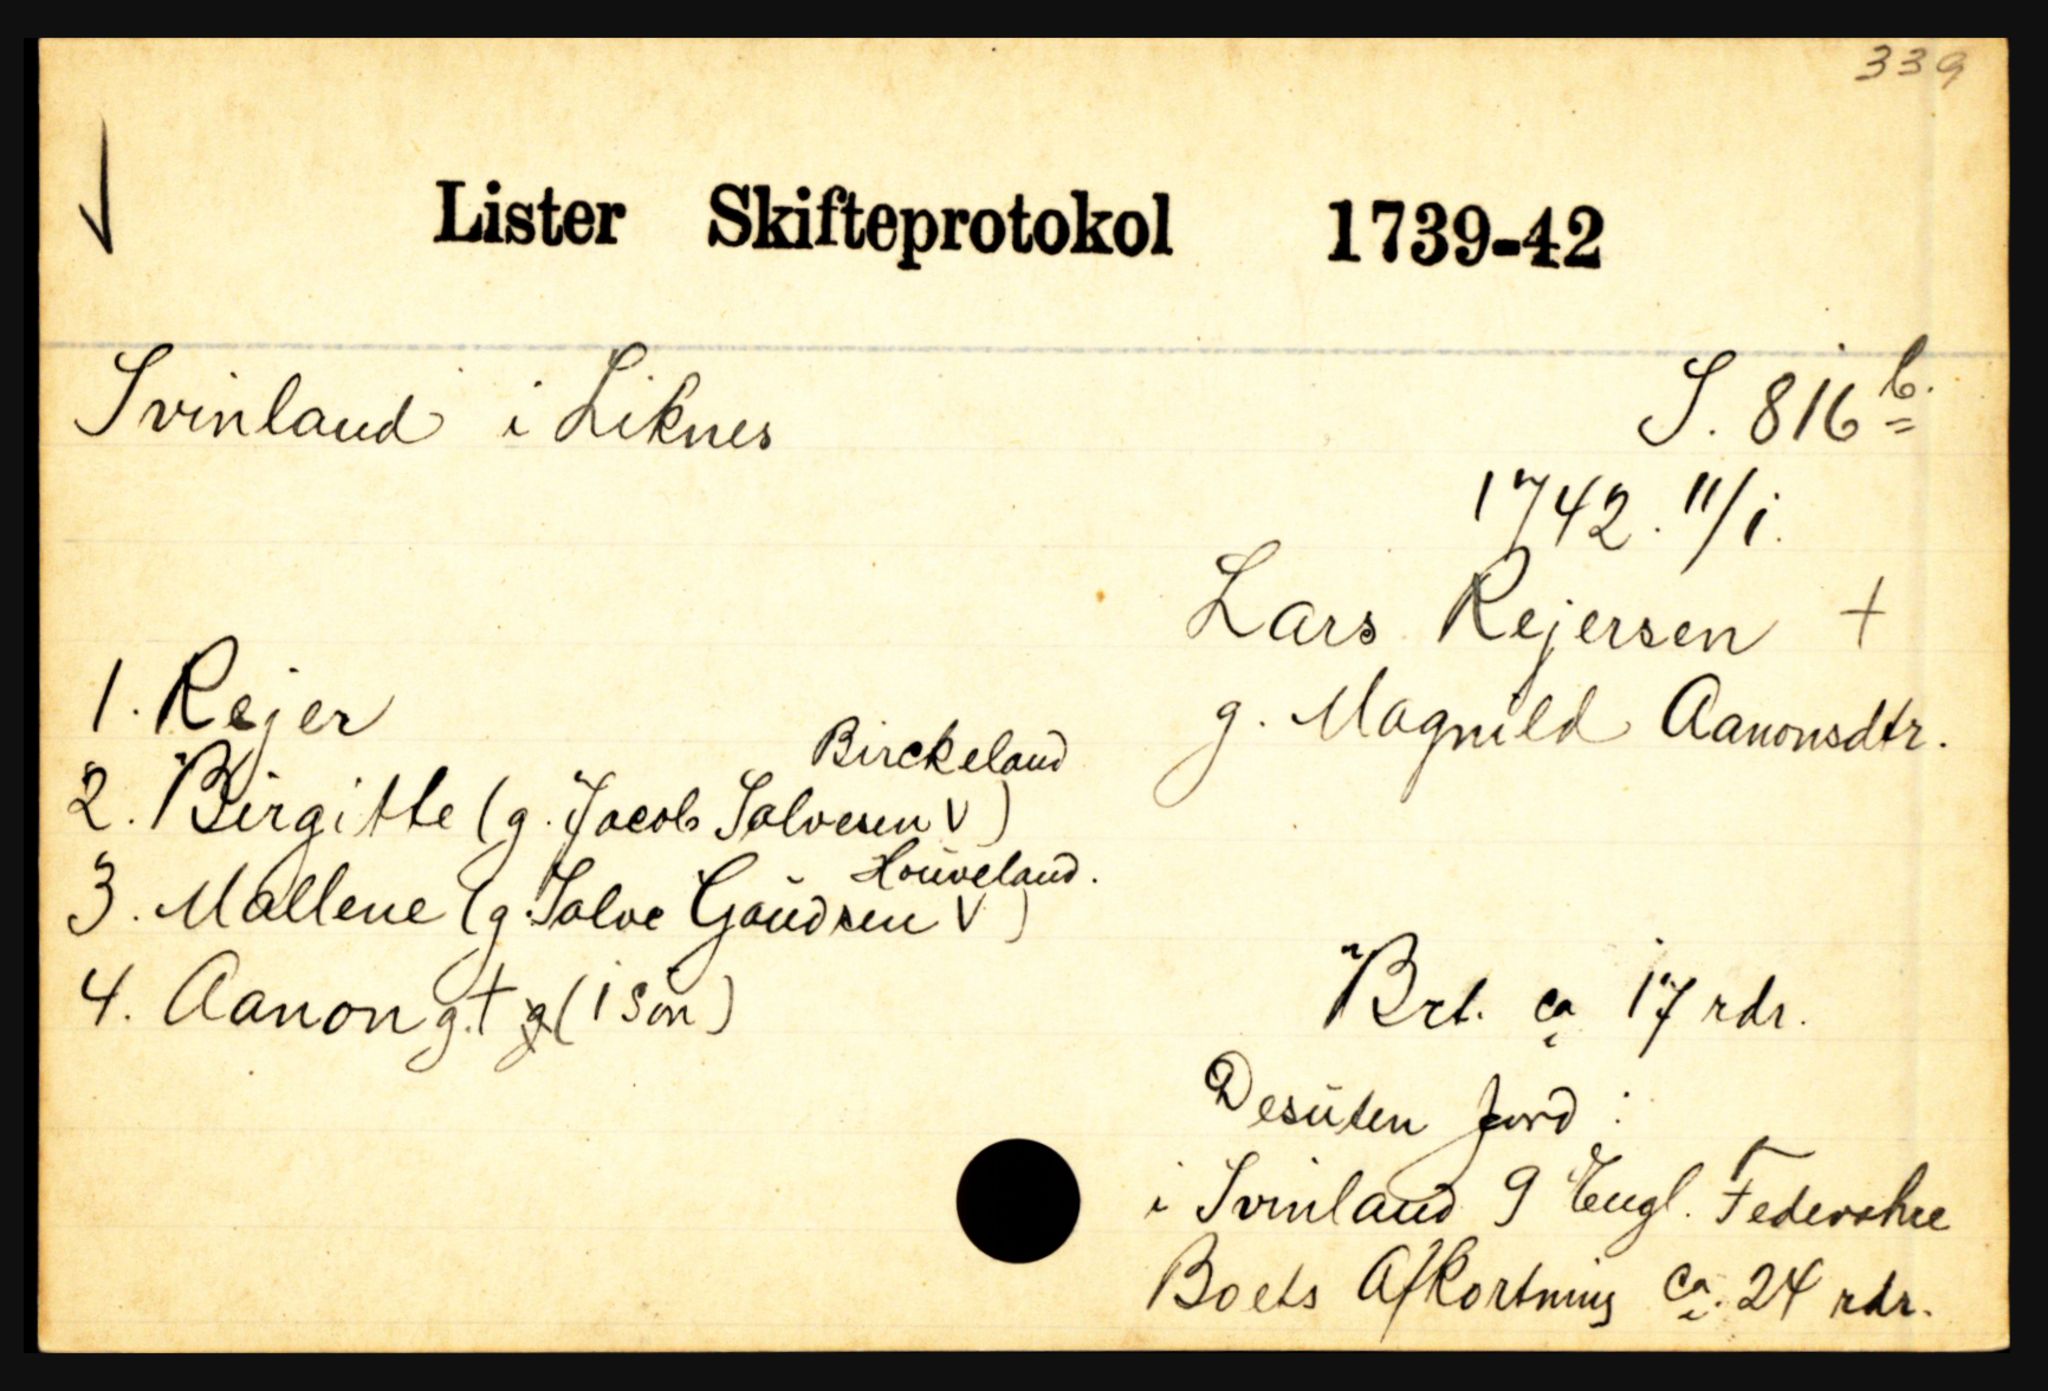 339
Lister Skifteprotokol 1739-42
Svinland i Liknes
S. 816 b.
1742. 11/1.
Lars Rejersen +
g. Magnild Aanonsdtr.
1. Rejer
Birckeland
2. Birgitte (g. Jacob Salvesen v)
Houveland.
3. Mallene (g. Salve Gaudsen v)
4. Aanon g. + g (1 søn)
Brt. ca 17 rdr.
Desuten Jord :
i Svinland 9 Engl.
Boets Afkortning ca. 24 rdr.